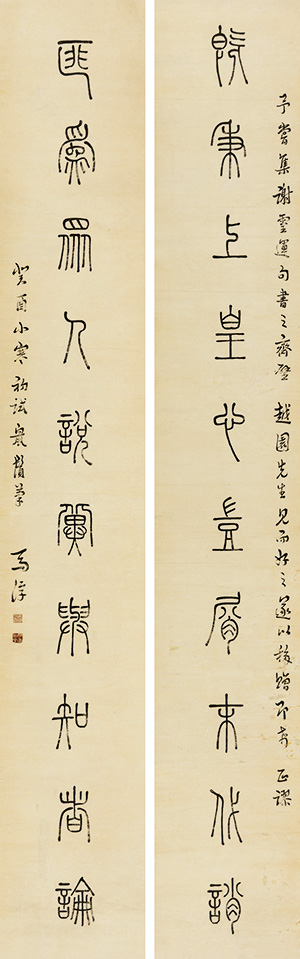 予嘗集謝靈運句書之齋壁 越園先生見而好之遂以移贈即希 正謬
既秉上皇心豈屑末代誚
匪為眾人說冀與知者論
癸酉小寒初試鼠鬚筆 馬浮